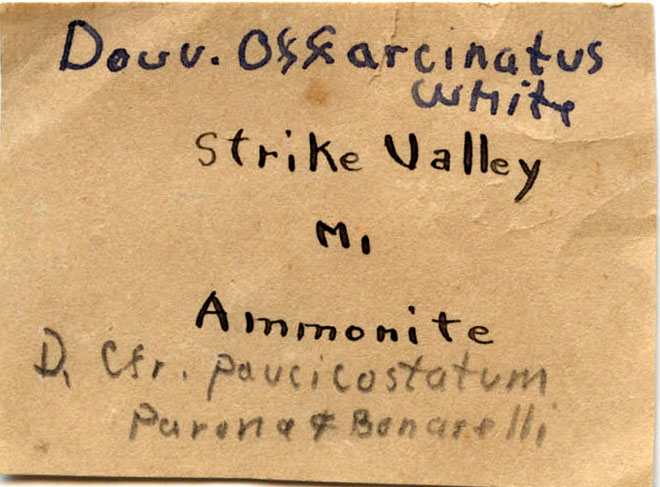 Douv. Ossarcinatus
White
Strike Valley
M1
Ammonite
D. Cfr. paucicostatum
Parona & Bonarelli